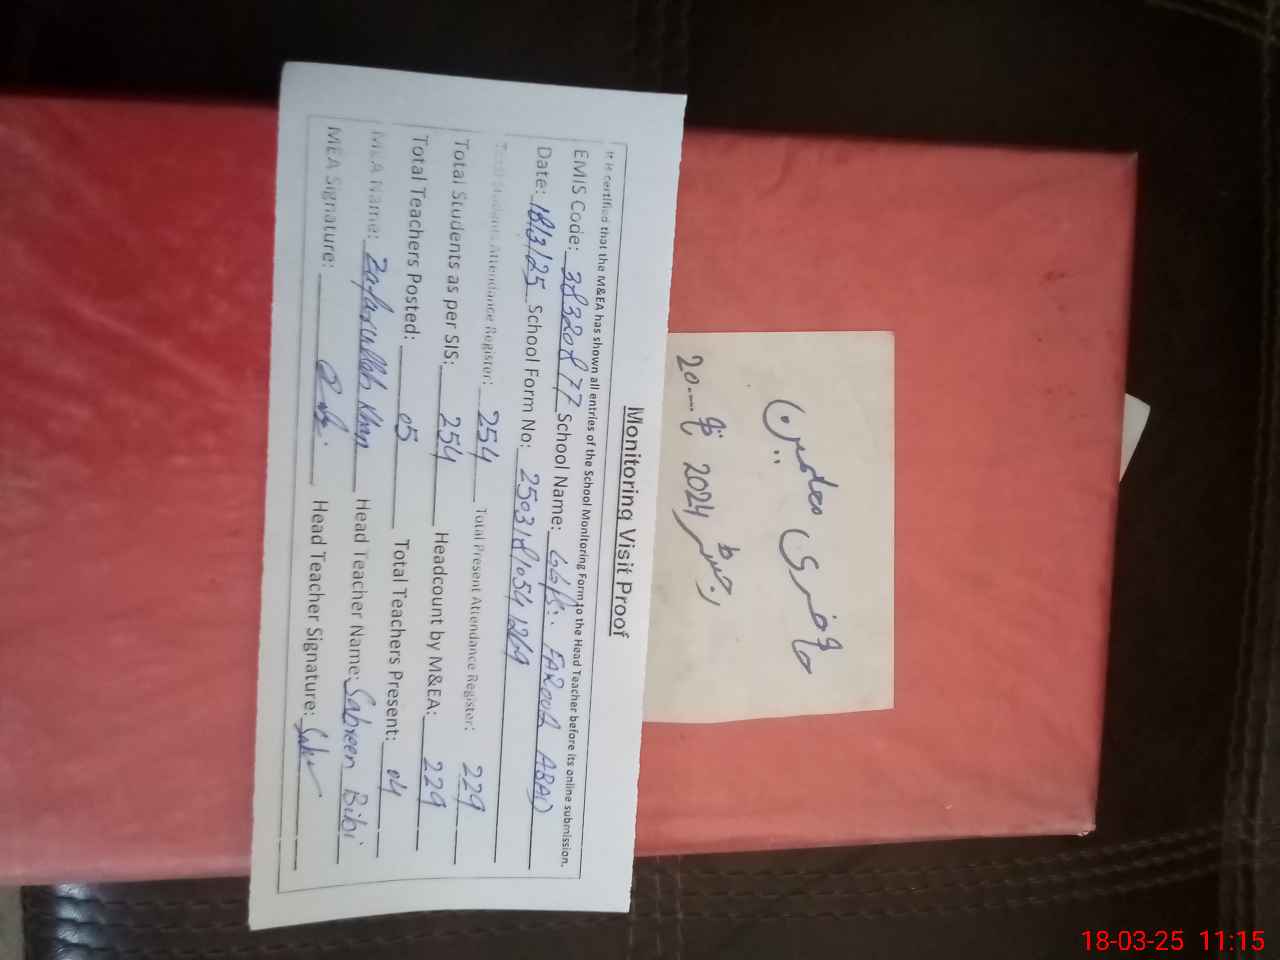 Monitoring Visit Proof
It is certified that the M&EA has shown all entries of the School Monitoring Form to the Head Teacher before its online submission.
EMIS Code: 38320877 School Name: GGPS: FAROOQ ABAD
Date: 18/3/25 School Form No: 250318/0541269
Total Students Attendance Register: 254 Total Present Attendance Register: 229
Total Students as per SIS: 254 Headcount by M&EA: 229
Total Teachers Posted: 05 Total Teachers Present: 04
MEA Name: Zafarullah Khan Head Teacher Name: Sabreen Bibi
MEA Signature: Head Teacher Signature:
حاضری معلمین
رجسٹر 2024 تا 20....
18-03-25 11:15